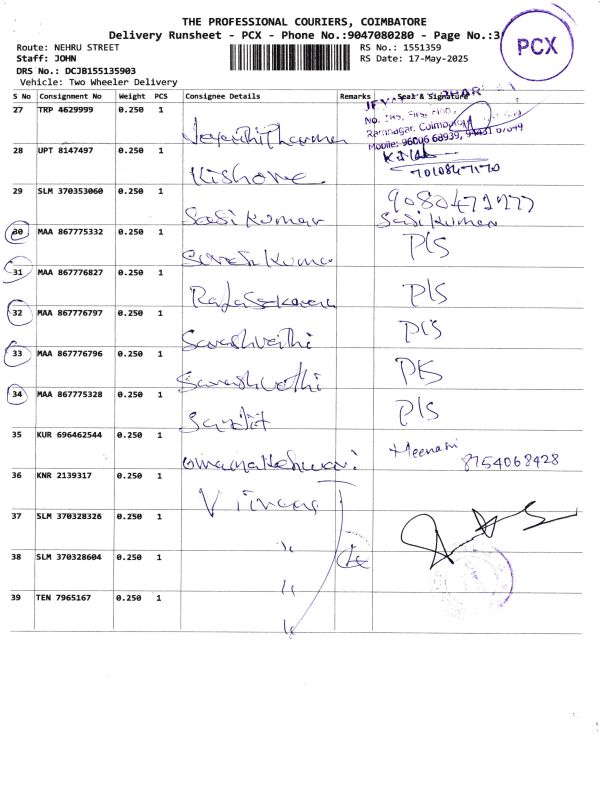 THE PROFESSIONAL COURIERS, COIMBATORE
Delivery Runsheet - PCX - Phone No.:9047080280 - Page No.:3
PCX
Route: NEHRU STREET
RS No.: 1551359
Staff: JOHN
RS Date: 17-May-2025
DRS No.: DCJB155135903
Vehicle: Two Wheeler Delivery
S No Consignment No Weight PCS Consignee Details Remarks Seal & Signature
27 TRP 4629999 0.250 1
Ramnagar, Coimbatore
28 UPT 8147497 0.250 1
Kishore
29 SLM 370353060 0.250 1
Sasikumar Sasikumar
30 MAA 867775332 0.250 1
Suresh Kumar P/S
31 MAA 867776827 0.250 1
Rajasekaran P/S
32 MAA 867776797 0.250 1
P/S
33 MAA 867776796 0.250 1
P/S
34 MAA 867775328 0.250 1
P/S
35 KUR 696462544 0.250 1
Umamaheshwari 8754068428
36 KNR 2139317 0.250 1
37 SLM 370328326 0.250 1
"
38 SLM 370328604 0.250 1
"
39 TEN 7965167 0.250 1
"